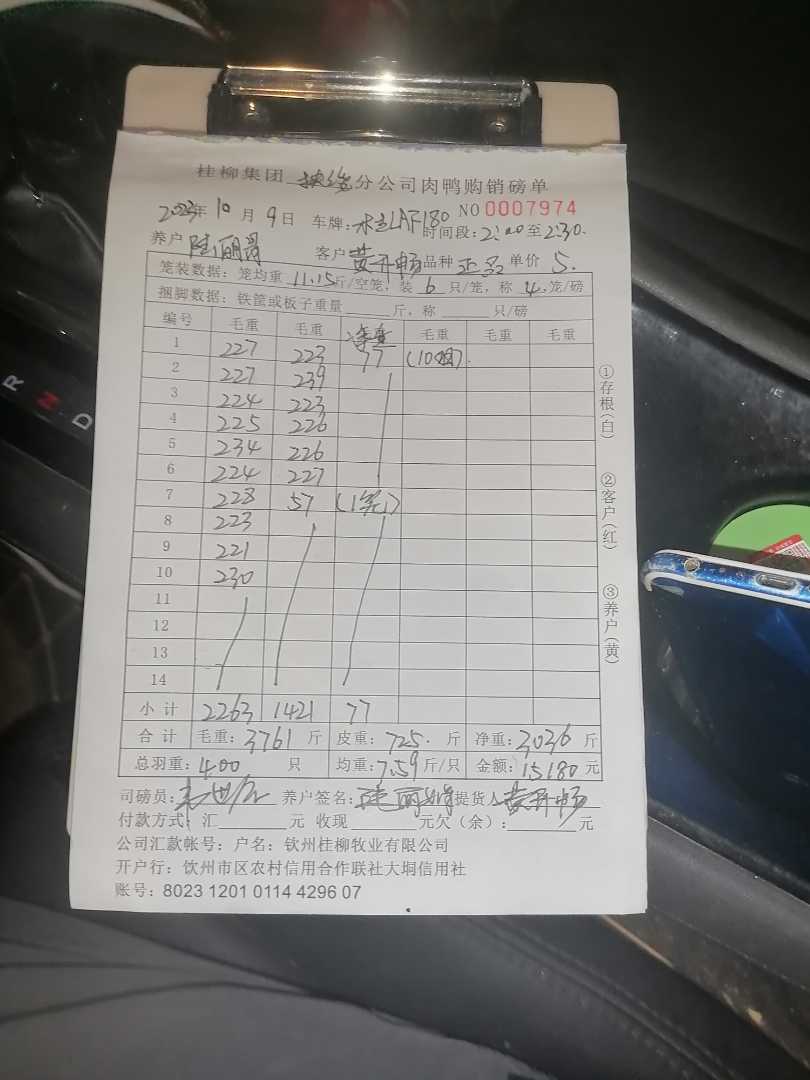 桂柳集团 分公司肉鸭购销磅单
2023年10月9日 车牌: LAF180 NO 0007974
时间段:2:00至2:30.
养户 陆丽 客户 黄开畅 品种 正名 单价 5.
笼装数据:笼均重 11.15斤/空笼,装 6 只/笼,称 4. 笼/磅
捆脚数据:铁筐或板子重量 斤,称 只/磅
编号 毛重 毛重 净重 毛重 毛重 毛重
1 227 223 77 (10)
2 227 239
3 224 223
4 225 226
5 234 226
6 224 227
7 228 57 (1笼)
8 223
9 221
10 230
11
12
13
14
小计 2263 1421 77
合计 毛重:3761 斤 皮重:725. 斤 净重:3036 斤
总羽重:400 只 均重:7.59斤/只 金额:15180元
司磅员: 养户签名:陆丽 提货人 黄开畅
付款方式:汇 元 收现 元欠(余): 元
公司汇款帐号:户名:钦州桂柳牧业有限公司
开户行:钦州市区农村信用合作联社大垌信用社
账号:8023 1201 0114 4296 07
①存根(白)
②客户(红)
③养户(黄)
R
N
D